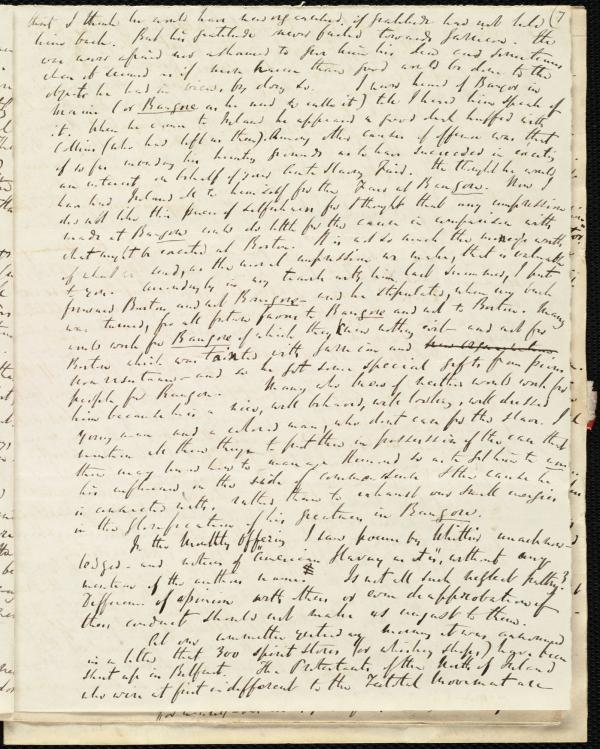 not I think he would have been so cautious, if gratitude had not held (7
him back. But his gratitude never failed towards Garrison. He
was never afraid nor ashamed to give him his due and sometimes
when it seemed as if more harm than good would be done to the
objects he had in view, by doing so. I never heard of Bangor in
Maine (or Bangore as he used to call it) till I heard him speak of
it. When he came to Ireland he appeared a good deal huffed with
Collins (who had left us then). Among other causes of offence was that
of so far invading his hunting grounds as to have succeeded in exciting
an interest in behalf of your Anti Slavery Fair. He thought he would
have had Ireland all to himself for the Fair at Bangore. Now I
did not like this piece of selfishness for I thought that any impression
made at Bangore would do little for the cause in comparison with
what might be created at Boston. It is not so much the money's worth
of what is sent, as the moral impression we make, that is valuable
to you. Accordingly in my
 with him last Summer, I put
forward Boston and not Bangore - and he stipulated, when my back
was turned, for all future favors to Bangore and not to Boston. Many
would work for Bangore of which they knew nothing evil - and not for
Boston which was tainted with Garrison and
non resistance - and so he got some special gifts from
people for Bangore. Many who knew of neither would work for
him because he is a nice, well behaved, well looking, well dressed
young man - and a colored man, who don't care for the slave. I
mention all these things to put thee in possession of the case that
thee may know how to manage
his influence on the side of
 the cause he
is connected with, rather than to exhaust our small energies
in the glorification of his greatness in Bangore.
In the Monthly Offering I saw poems by Whittier unacknow-
ledged - and notices of "American Slavery as it is", without any
mention of the author's name. Is not all such neglect petty?
Difference of opinion with them or even disapprobation of
their conduct should not make us unjust to them.
At our committee yesterday morning it was announced
in a letter that 300 spirit stores (or whiskey shops) have been
shut up in Belfast. The Protestants of the North of Ireland
who were at first indifferent to the Teetotal movement are